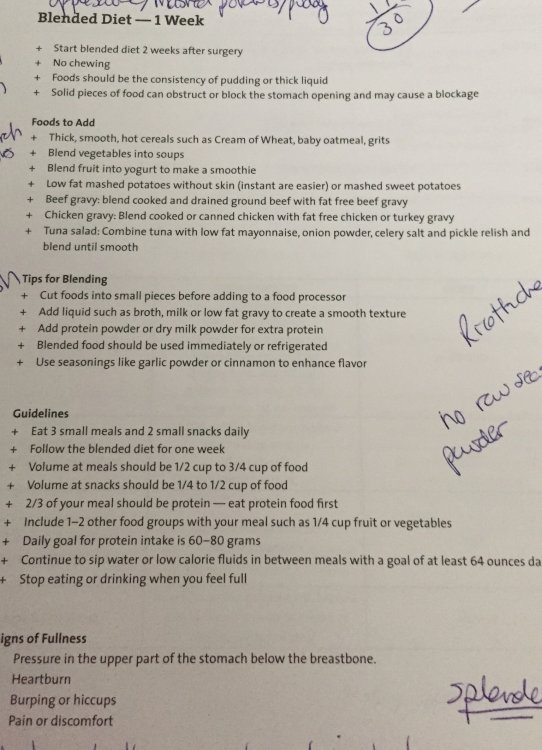 applesauce/mashed potatoes/pudding
Blended Diet — 1 Week
30
+ Start blended diet 2 weeks after surgery
+ No chewing
+ Foods should be the consistency of pudding or thick liquid
+ Solid pieces of food can obstruct or block the stomach opening and may cause a blockage
Foods to Add
+ Thick, smooth, hot cereals such as Cream of Wheat, baby oatmeal, grits
+ Blend vegetables into soups
+ Blend fruit into yogurt to make a smoothie
+ Low fat mashed potatoes without skin (instant are easier) or mashed sweet potatoes
+ Beef gravy: blend cooked and drained ground beef with fat free beef gravy
+ Chicken gravy: Blend cooked or canned chicken with fat free chicken or turkey gravy
+ Tuna salad: Combine tuna with low fat mayonnaise, onion powder, celery salt and pickle relish and
blend until smooth
Tips for Blending
+ Cut foods into small pieces before adding to a food processor
+ Add liquid such as broth, milk or low fat gravy to create a smooth texture
+ Add protein powder or dry milk powder for extra protein
+ Blended food should be used immediately or refrigerated
+ Use seasonings like garlic powder or cinnamon to enhance flavor
no raw sea
powder
Guidelines
+ Eat 3 small meals and 2 small snacks daily
+ Follow the blended diet for one week
+ Volume at meals should be 1/2 cup to 3/4 cup of food
+ Volume at snacks should be 1/4 to 1/2 cup of food
+ 2/3 of your meal should be protein — eat protein food first
+ Include 1–2 other food groups with your meal such as 1/4 cup fruit or vegetables
+ Daily goal for protein intake is 60–80 grams
+ Continue to sip water or low calorie fluids in between meals with a goal of at least 64 ounces da
+ Stop eating or drinking when you feel full
igns of Fullness
Pressure in the upper part of the stomach below the breastbone.
Heartburn
Burping or hiccups
Pain or discomfort
splende